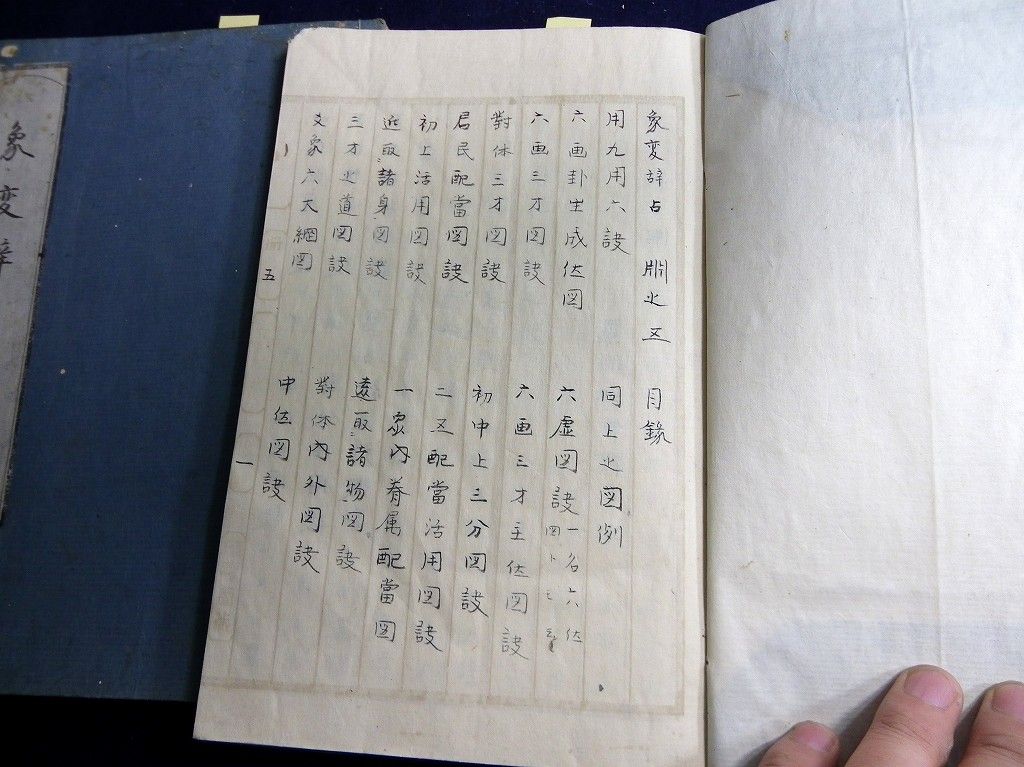 象変辞占 之五 目録
用九用六訣 同上之図例
六画卦生成位図 六虚図訣 一名六位
図トモ
六画三才図訣 六画三才主位図訣
對体三才図訣 初中上三分図訣
君民配當図訣 二五配當活用図訣
初上活用図訣 一家内眷属配當図
近取諸身図訣 遠取諸物図訣
三才之道図訣 對体内外図訣
爻象六大綱図 中位図訣
五 一
象変辞